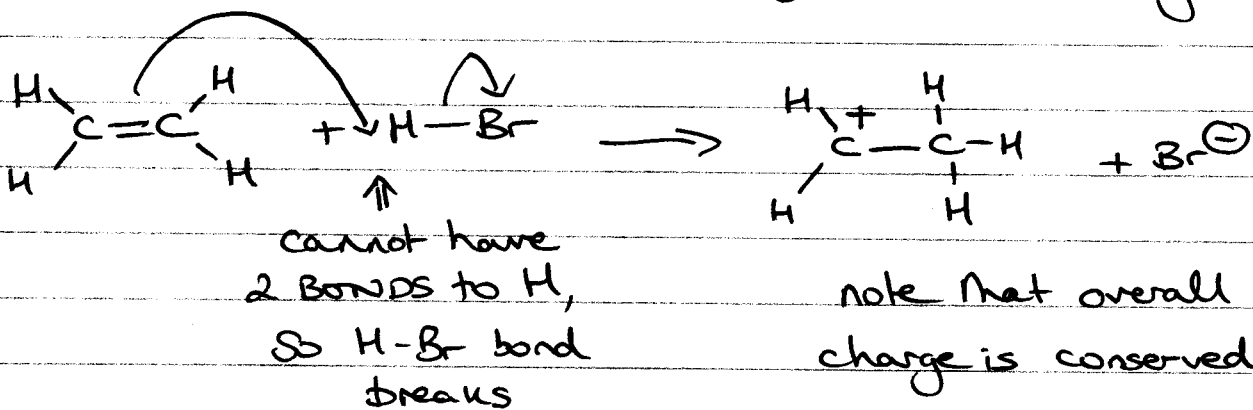 H H
C=C + H-Br ⟶ H + H
H H C-C-H + Br⊖
H H
⇑
cannot have
2 BONDS to H,
so H-Br bond
breaks
note that overall
charge is conserved